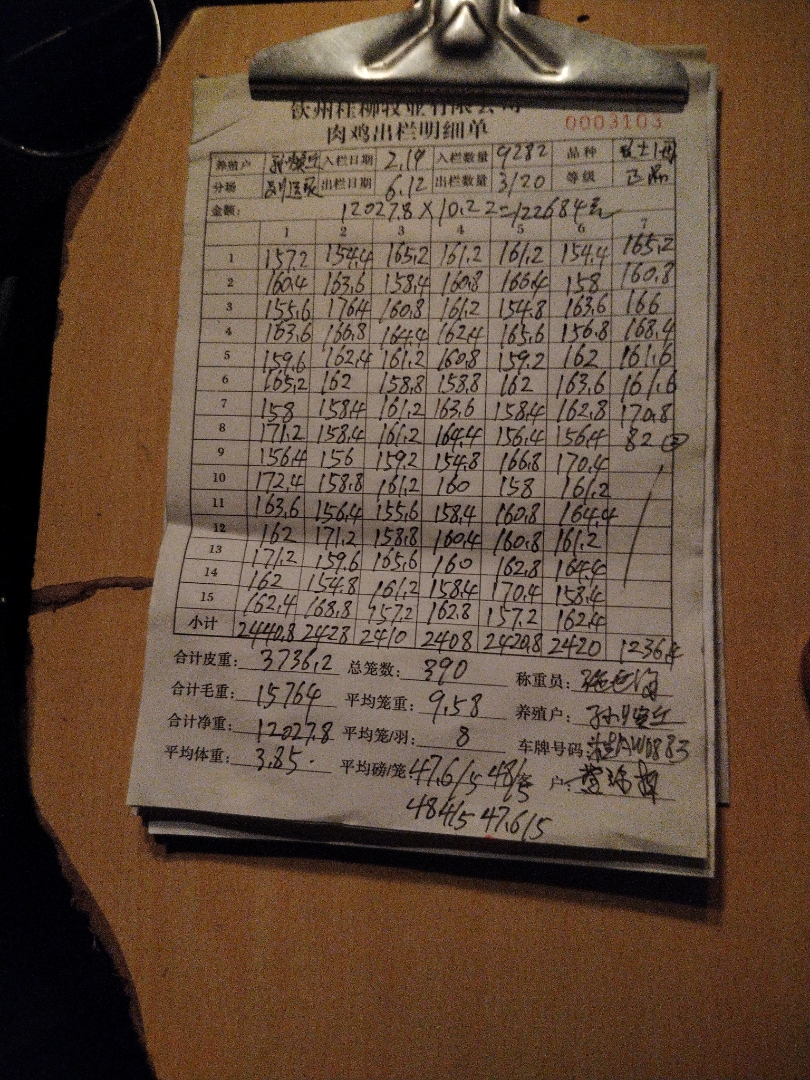 钦州桂柳牧业有限公司
肉鸡出栏明细单 0003103
养殖户 入栏日期 2.19 入栏数量 9282 品种
分场 出栏日期 6.12 出栏数量 3120 等级 正品
金额: 12027.8×10.2 2=122684元
1 2 3 4 5 6 7
1 157.2 154.4 165.2 161.2 161.2 154.4 165.2
2 160.4 163.6 158.4 160.8 166.4 158 160.8
3 155.6 176.4 160.8 161.2 154.8 163.6 166
4 163.6 166.8 164.4 162.4 165.6 156.8 168.4
5 159.6 162.4 161.2 160.8 159.2 162 161.6
6 165.2 162 158.8 158.8 162 163.6 161.6
7 158 158.4 161.2 163.6 158.4 162.8 170.8
8 171.2 158.4 161.2 164.4 156.4 156.4 82
9 156.4 156 159.2 154.8 166.8 170.4
10 172.4 158.8 161.2 160 158 161.2
11 163.6 156.4 155.6 158.4 160.8 164.4
12 162 171.2 158.8 160.4 160.8 161.2
13 171.2 159.6 165.6 160 162.8 164.4
14 162 154.8 161.2 158.4 170.4 158.4
15 162.4 168.8 157.2 162.8 157.2 162.4
小计 2440.8 2428 2410 2408 2420.8 2420 1236.4
合计皮重: 3736.2 总笼数: 390 称重员:
合计毛重: 15764 平均笼重: 9.58 养殖户:
合计净重: 12027.8 平均笼/羽: 8 车牌号码:
平均体重: 3.85. 平均磅/笼 47.6/5 48/5 客户:
484/5 47.6/5